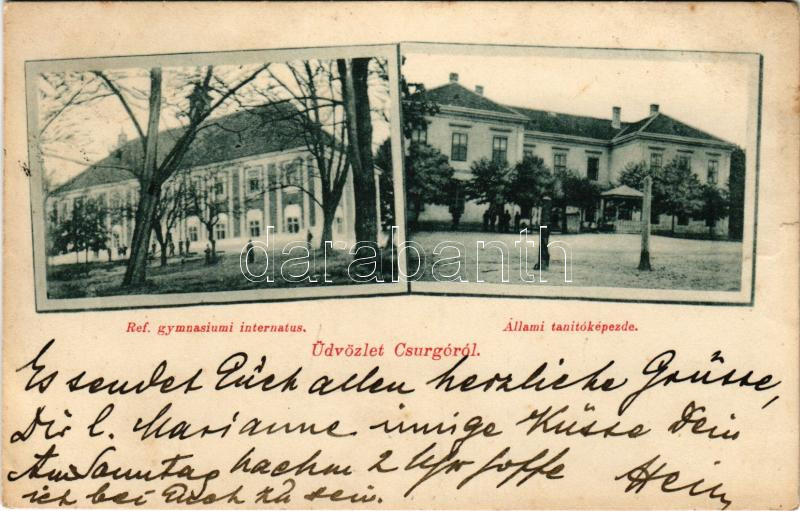 darabanth
Ref. gymnasiumi internatus.
Állami tanitóképezde.
Üdvözlet Csurgóról.
Es sendet Euch allen herzliche Grüsse,
Dir l. Marianne innige Küsse Dein
Am Sonntag nachm 2 Uhr hoffe Hein
ich bei Euch zu sein.